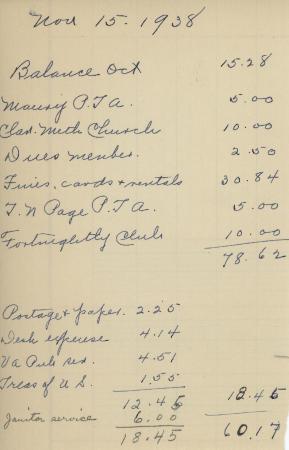 Nov 15. 1938
Balance Oct 15.28
Maury P.T.A. 5.00
Clar. Meth Church 10.00
Dues member. 2.50
Fines, cards & rentals 30.84
T. N Page P.T A. 5.00
Fortnightly Club 10.00
78.62
Postage & paper. 2.25
Desk expense 4.14
Va Pub ser. 4.51
Treas of U S. 1.55
12.45 18.45
Janitor service 6.00 60.17
18.45